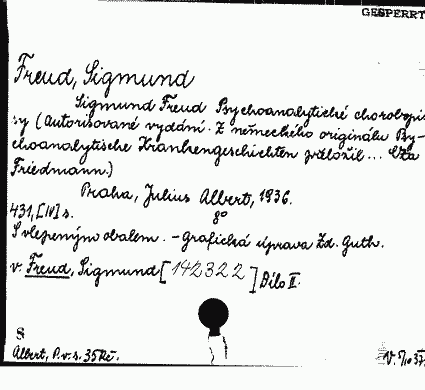 GESPERRT
Freud, Sigmund
Sigmund Freud Psychoanalytické chorobopi-
sy (Autorisované vydání. Z německého originálu Psy-
choanalytische Krankengeschichten přeložil... Ota
Friedmann.)
Praha, Julius Albert, 1936.
431, [IV] s. 8°
S vlepeným obalem. - Grafická úprava Zd. Guth.
v. Freud, Sigmund [142322] Dílo II.
S
Albert, P. v. s. 35 Kč.